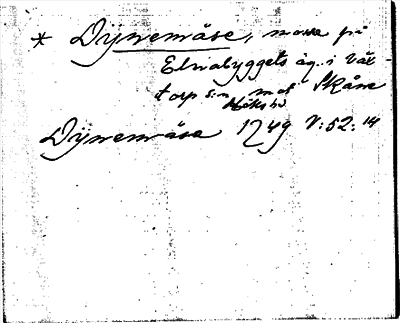 * Dÿnemåse, mosse på
Elvabyggets äg. i Väx-
torp s:n mot Skåne
Höks hd
Dÿnemåse 1749 V:52:14